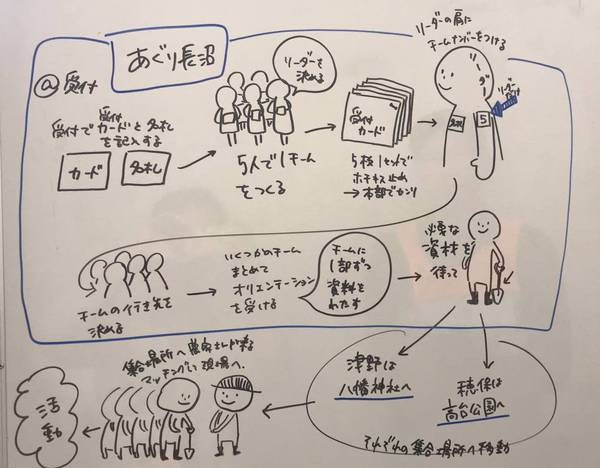 あぐり長沼
@受付
受付で受付カードと名札
を記入する
カード
名札
リーダーを
決める
5人で1チーム
をつくる
受付
カード
5枚1セットで
ホチキス止め
→本部でカンリ
リーダーの肩に
チームナンバーをつける
リーダー
名札
5
リーダー
だけ
チームの行き先を
決める
いくつかのチーム
まとめて
オリエンテーション
を受ける
チームに
1部ずつ
資料を
わたす
必要な
資材を
待って
津野は
八幡神社へ
穂保は
高台公園へ
それぞれの集合場所へ移動
集合場所へ農家さんが来る
マッチングし現場へ。
活動